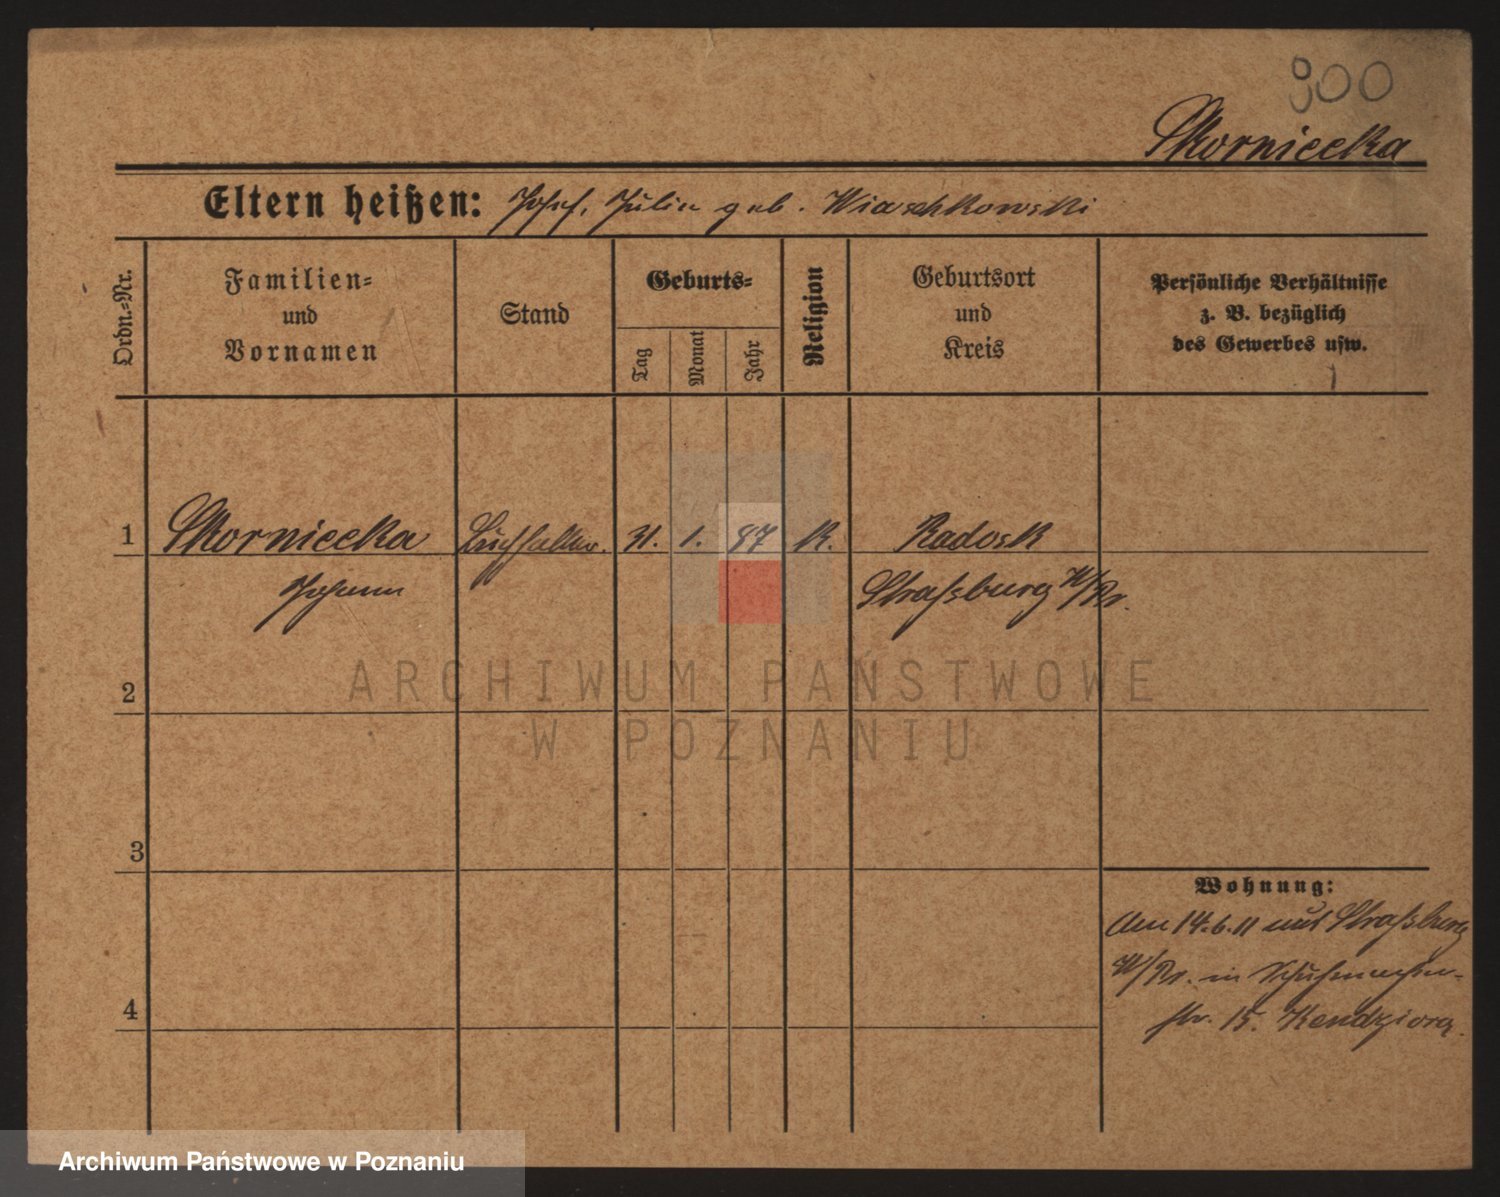 900
Skorniecka
Eltern heißen: Josef, Julie geb. Wiaschkowski
Ordn.-Nr.
Familien-
und
Vornamen
Stand
Geburts-
Tag
Monat
Jahr
Religion
Geburtsort
und
Kreis
Persönliche Verhältnisse
z. B. bezüglich
des Gewerbes usw.
1 Skorniecka Buchhalter. 31. 1. 87 K. Radosk
Johann Straßburg W/Pr.
2
3
4
Wohnung:
Am 14.6.11 aus Straßburg
W/Pr. in Schuhmacher-
str. 15. Kendziora.
ARCHIWUM PAŃSTWOWE
W POZNANIU
Archiwum Państwowe w Poznaniu